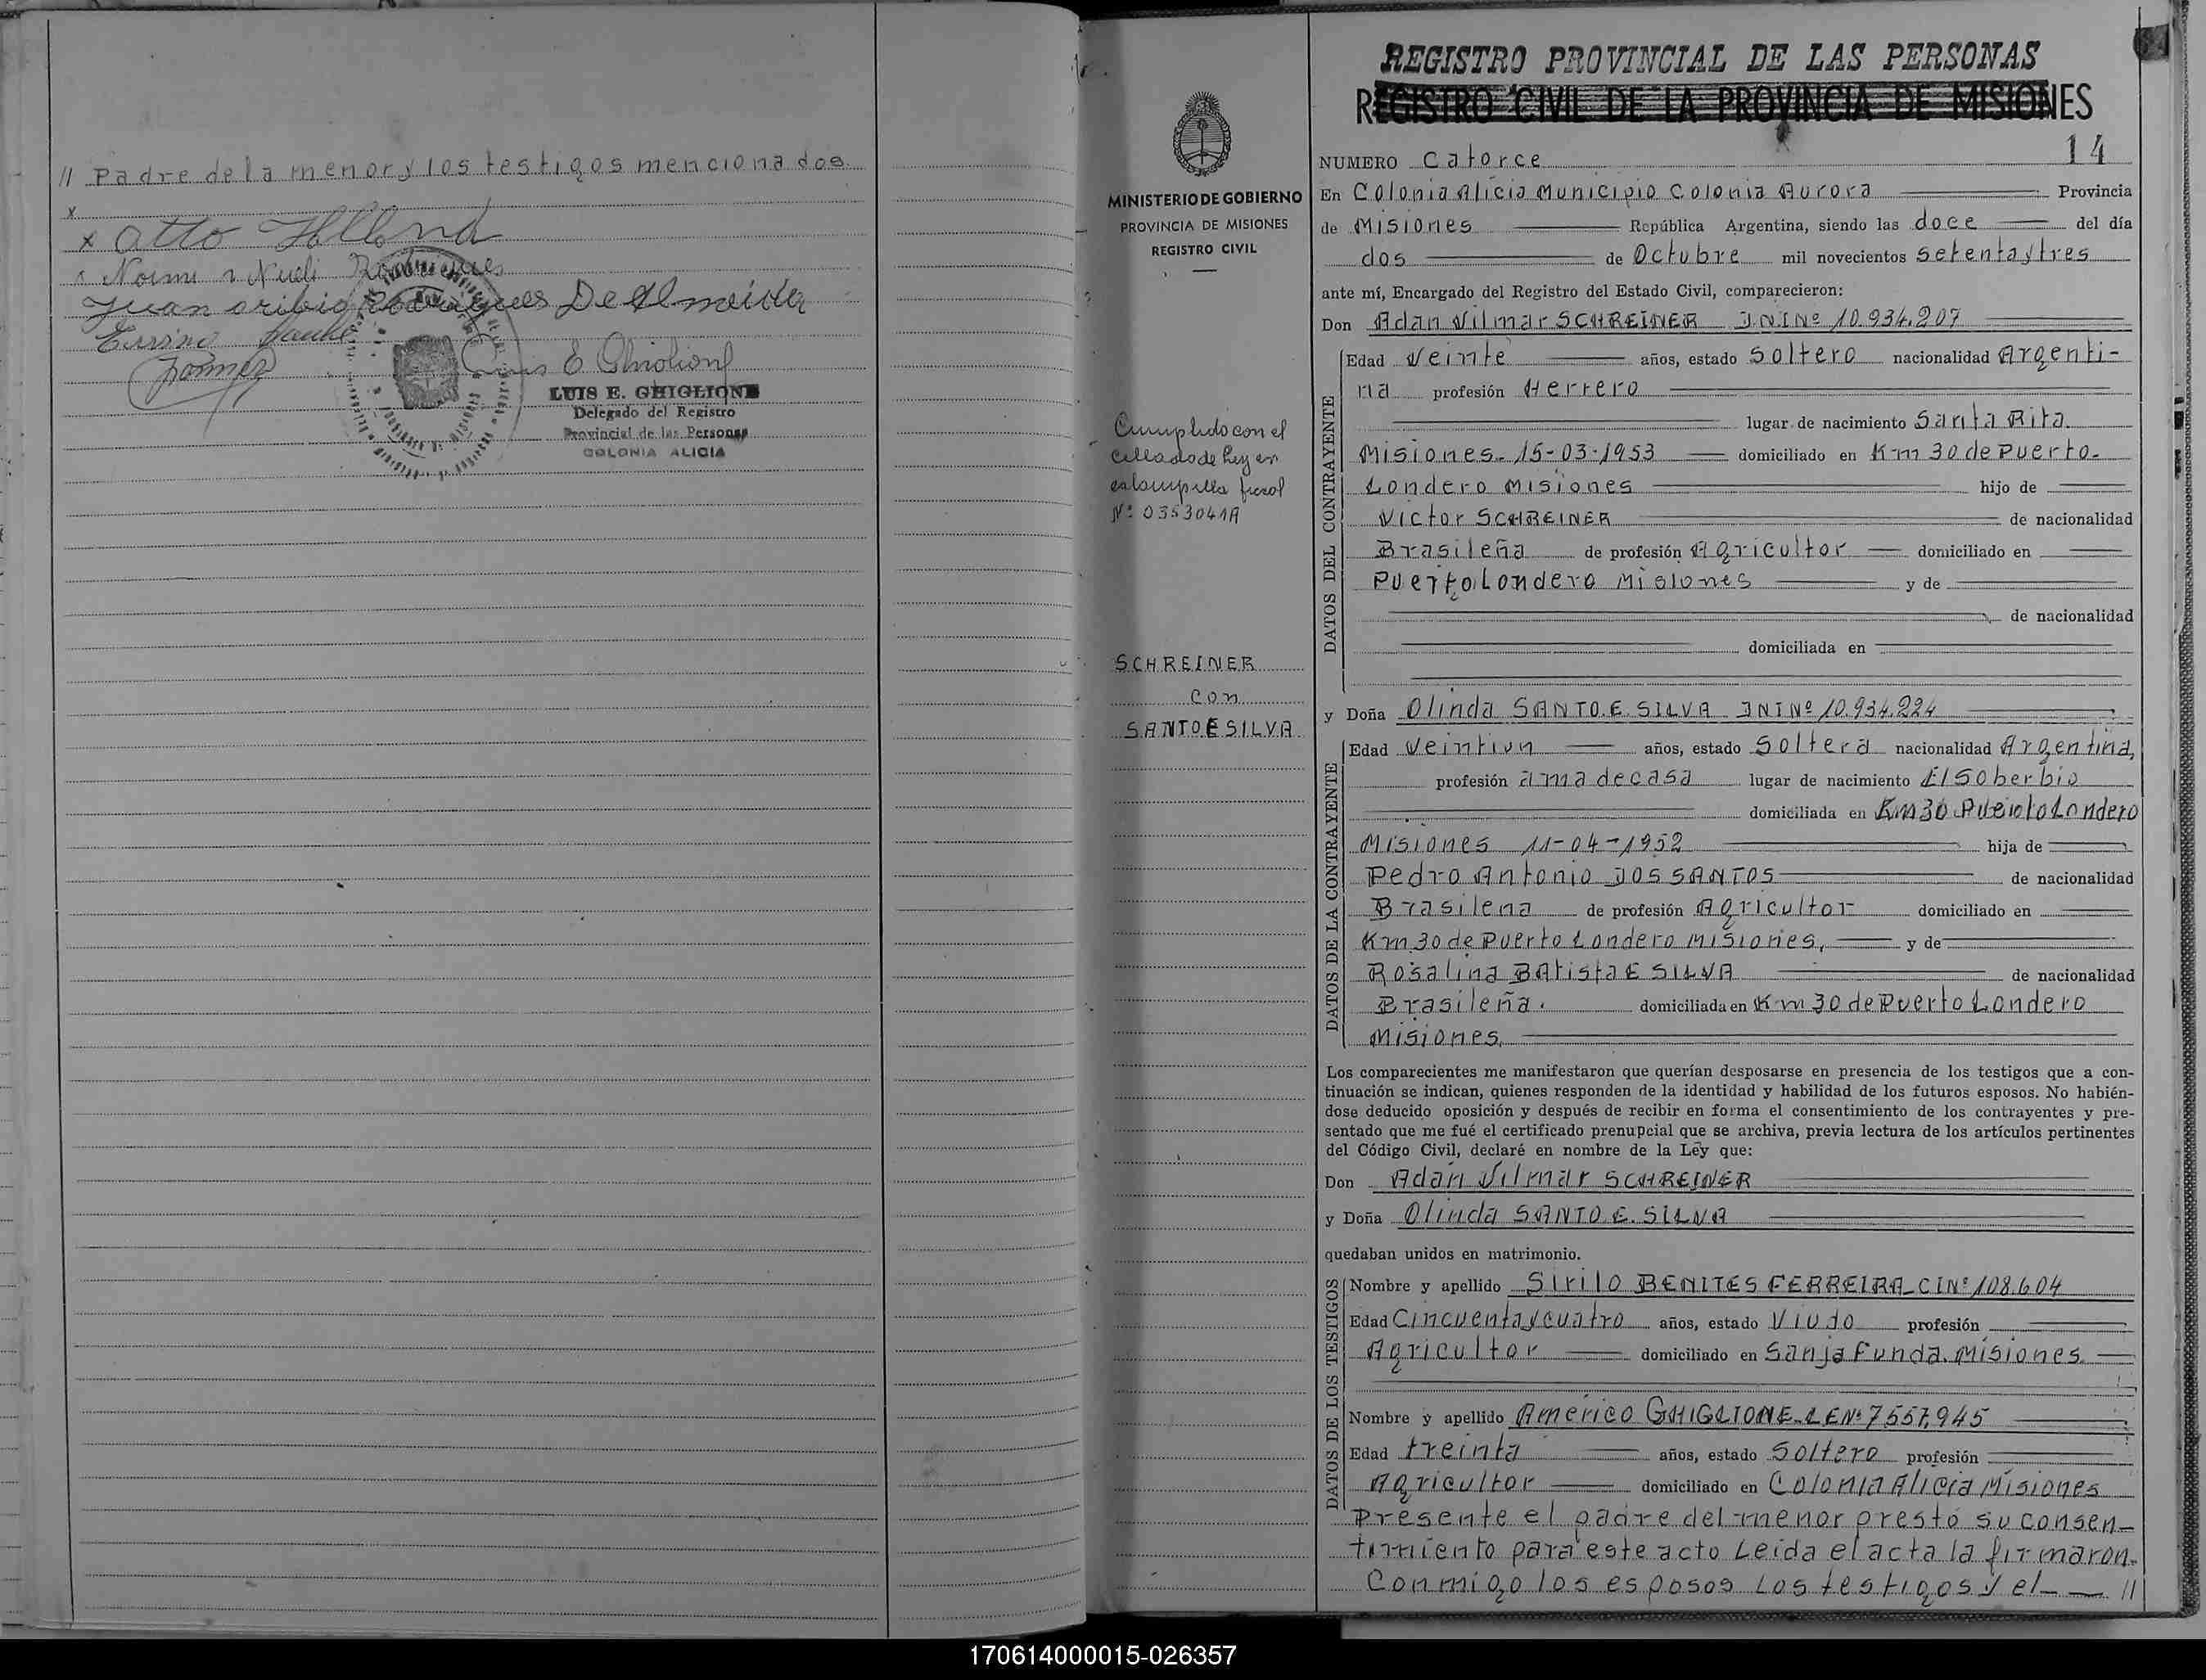 // Padre de la menor y los testigos mencionados.
x
x Otto
Noimi Nueli Rodrigues
Juan oribio Rodrigues De Almeida
Luis E. Ghiglione
LUIS E. GHIGLIONE
Delegado del Registro
Provincial de las Personas
COLONIA ALICIA
MINISTERIO DE GOBIERNO
PROVINCIA DE MISIONES
REGISTRO CIVIL
Cumplido con el
cellado de Ley en
estampilla fiscal
Nº 0353041A
SCHREINER
con
SANTO E SILVA
REGISTRO PROVINCIAL DE LAS PERSONAS
REGISTRO CIVIL DE LA PROVINCIA DE MISIONES
NUMERO Catorce 14
En Colonia Alicia Municipio Colonia Aurora Provincia
de Misiones República Argentina, siendo las doce del día
dos de Octubre mil novecientos setenta y tres
ante mí, Encargado del Registro del Estado Civil, comparecieron:
Don Adan Vilmar SCHREINER INI Nº 10.934.207
DATOS DEL CONTRAYENTE
Edad Veinte años, estado Soltero nacionalidad Argenti-
na profesión Herrero
lugar de nacimiento Santa Rita.
Misiones. 15-03-1953 domiciliado en Km 30 de Puerto.
Londero Misiones hijo de
Victor SCHREINER de nacionalidad
Brasileña de profesión Agricultor domiciliado en
Puerto Londero Misiones y de
de nacionalidad
domiciliada en
y Doña Olinda SANTO. E. SILVA INI Nº 10.934.224
DATOS DE LA CONTRAYENTE
Edad Veintiun años, estado Soltera nacionalidad Argentina,
profesión ama de casa lugar de nacimiento El Soberbio
domiciliada en Km 30 Puerto Londero
Misiones 11-04-1952 hija de
Pedro Antonio DOS SANTOS de nacionalidad
Brasilena de profesión Agricultor domiciliado en
Km 30 de Puerto Londero Misiones, y de
Rosalina BAtista E SILVA de nacionalidad
Brasileña. domiciliada en Km 30 de Puerto Londero
Misiones.
Los comparecientes me manifestaron que querían desposarse en presencia de los testigos que a con-
tinuación se indican, quienes responden de la identidad y habilidad de los futuros esposos. No habién-
dose deducido oposición y después de recibir en forma el consentimiento de los contrayentes y pre-
sentado que me fué el certificado prenupcial que se archiva, previa lectura de los artículos pertinentes
del Código Civil, declaré en nombre de la Ley que:
Don Adán Vilmar SCHREINER
y Doña Olinda SANTO. E. SILVA
quedaban unidos en matrimonio.
DATOS DE LOS TESTIGOS
Nombre y apellido Sirilo BENITES FERREIRA_CI Nº 108.604
Edad Cincuenta y cuatro años, estado Viudo profesión
Agricultor domiciliado en Sanja Funda. Misiones.
Nombre y apellido Américo GHIGLIONE. LE Nº 7557.945
Edad treinta años, estado Soltero profesión
Agricultor domiciliado en Colonia Alicia Misiones
Presente el padre del menor prestó su consen-
timiento para este acto Leida el acta la firmaron.
Conmigo los esposos Los testigos y el //
170614000015-026357